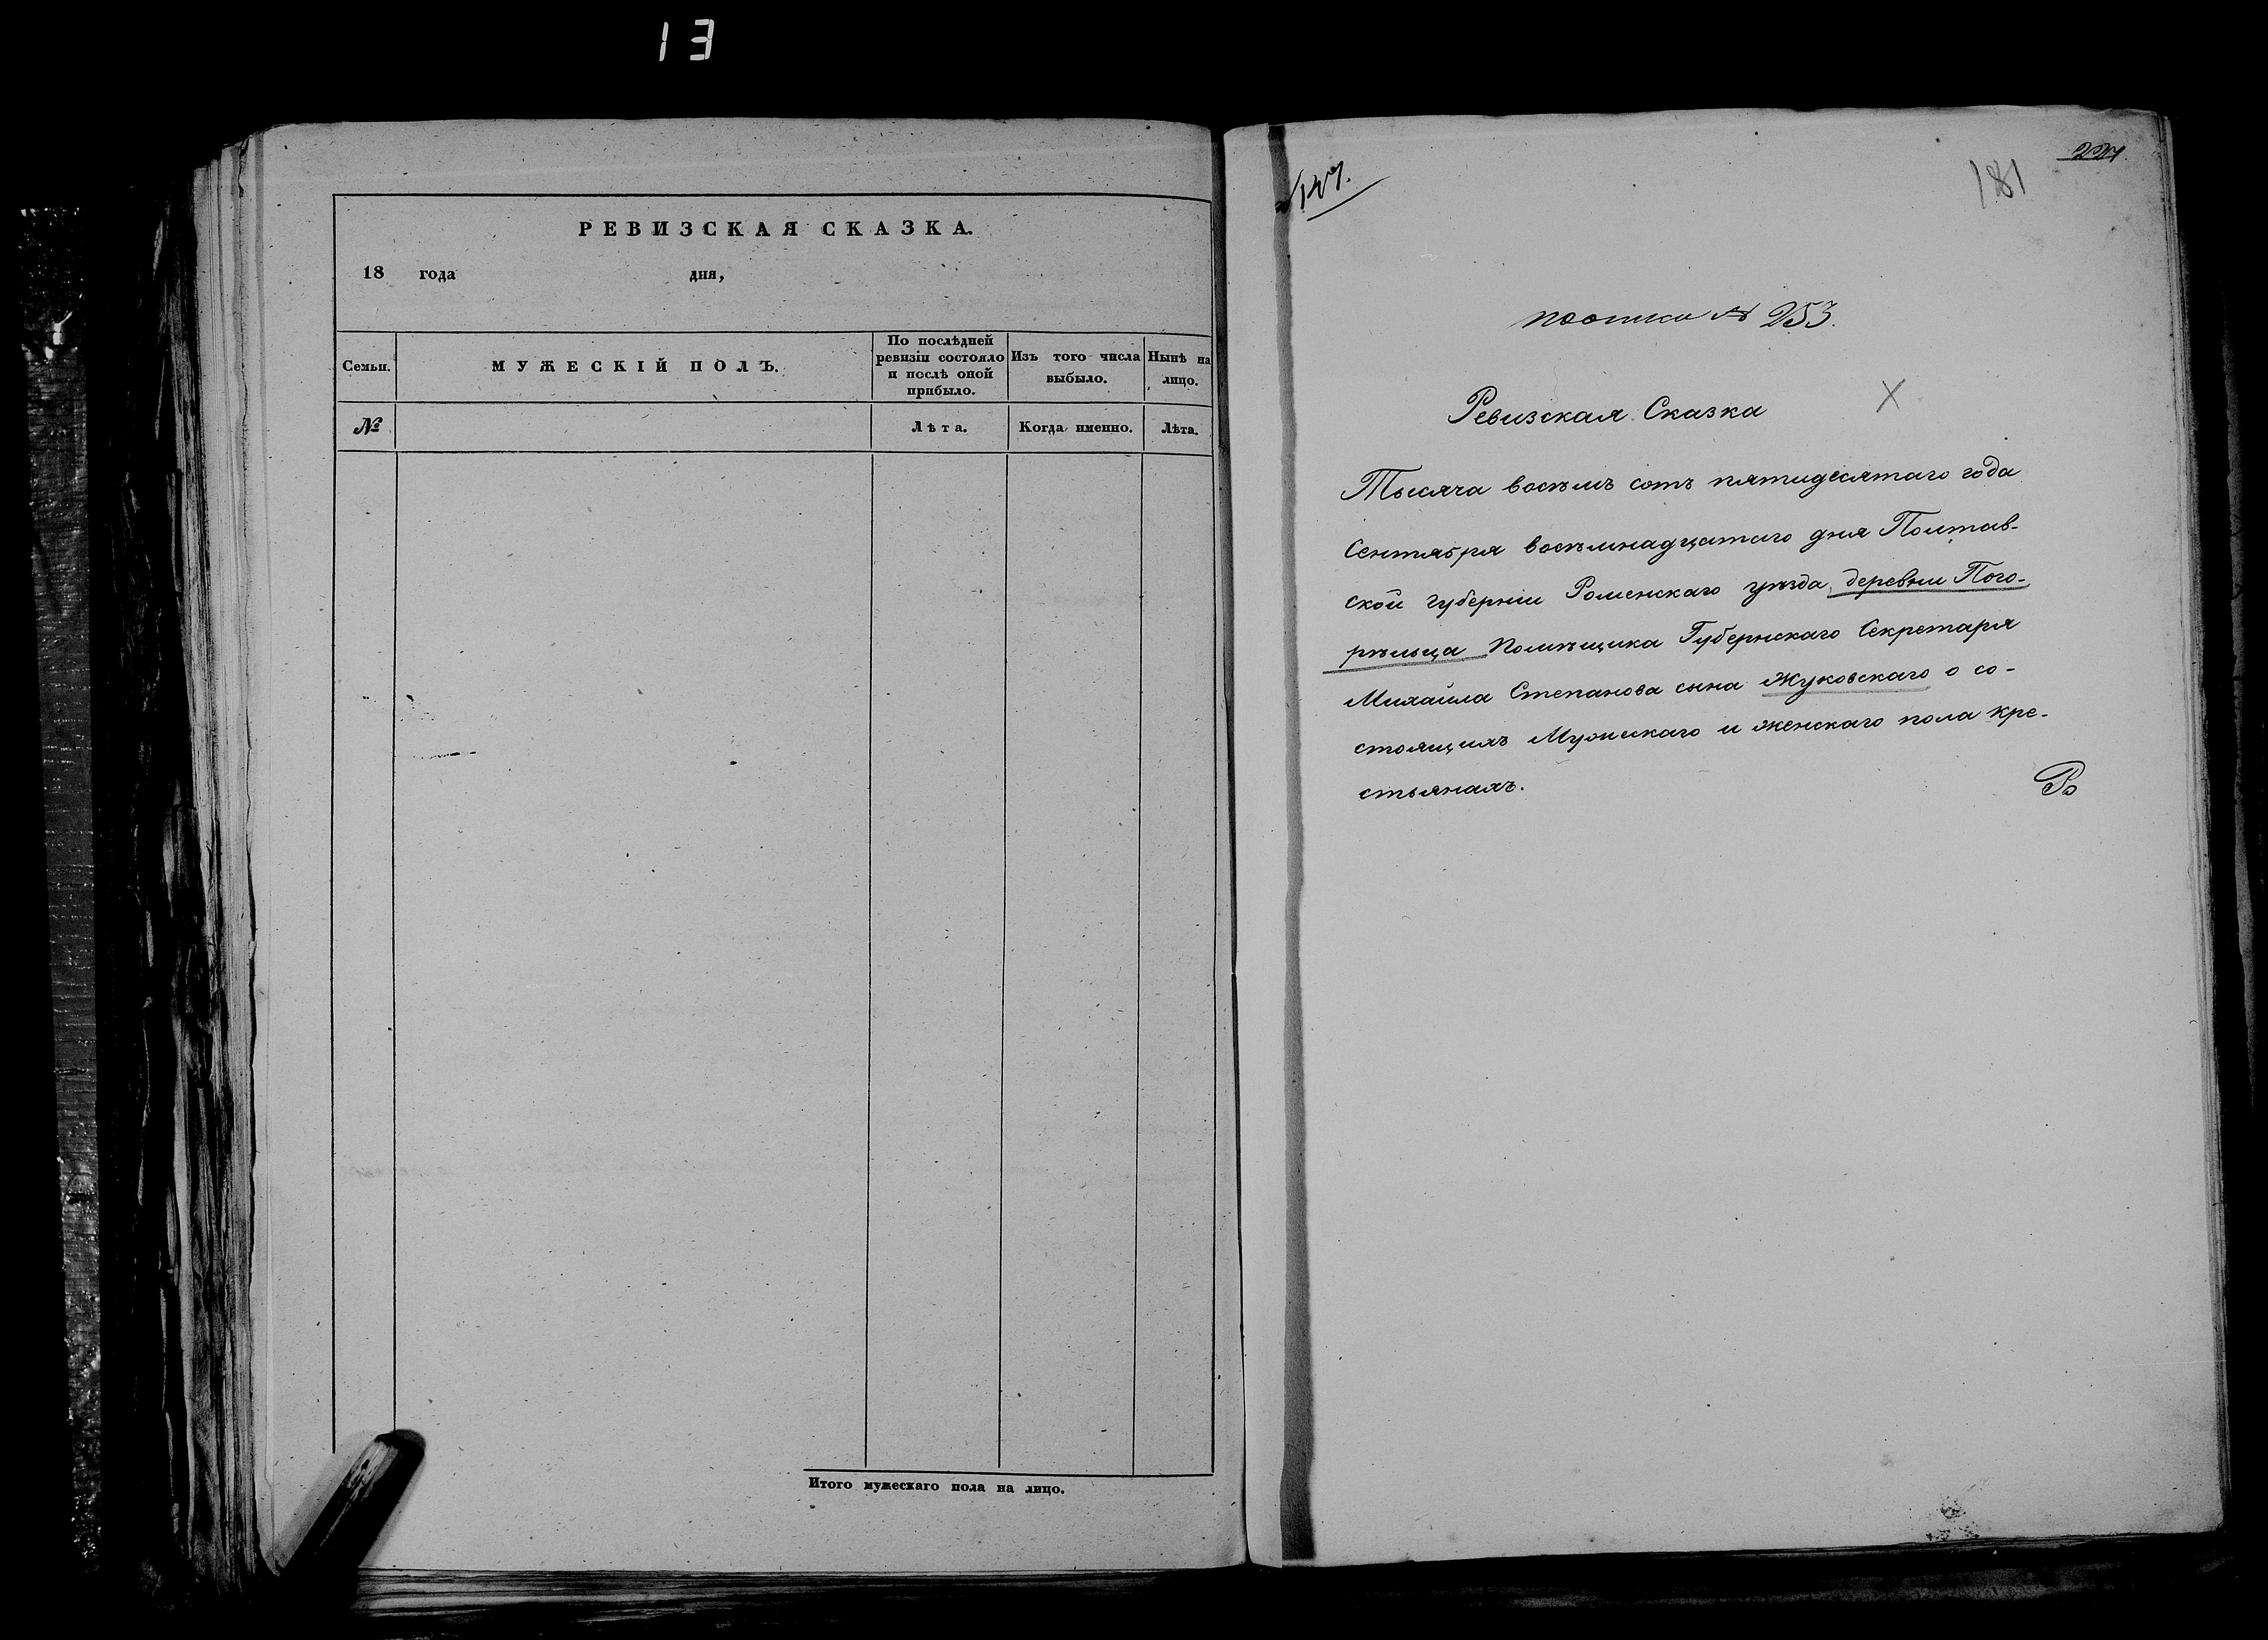 13
РЕВИЗСКАЯ СКАЗКА.
18 года дня,
Семьи.
МУЖЕСКІЙ ПОЛЪ.
По послѣдней
ревизіи состояло
и послѣ оной
прибыло.
Изъ того числа
выбыло.
Нынѣ на
лицо.
№
Лѣта.
Когда именно.
Лѣта.
Итого мужескаго пола на лицо.
181
№ 253.
Ревизская Сказка
Тысяча восѣмъ сотъ пятидесятаго года
Сентября восѣмнадцатаго дня Полтав-
ской губерніи Роменскаго уѣзда, деревни Пого-
рѣльца Помѣщика Губернскаго Секретаря
Михайла Степанова сына Жуковскаго о со-
стоящихъ Мужескаго и женскаго пола кре-
стьянахъ.